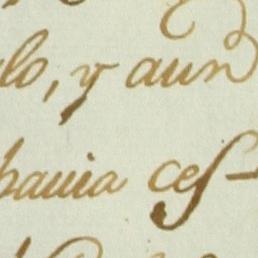 lo, y aun
bauia ces-